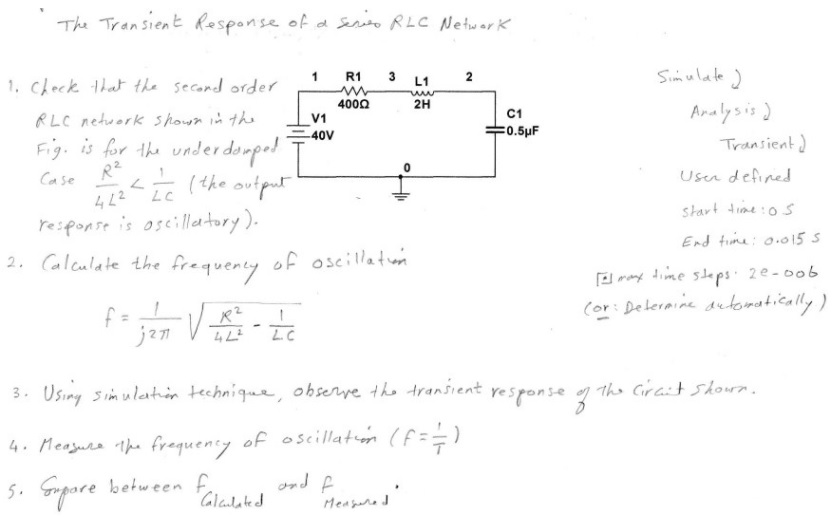 The Transient Response of a Series RLC Network
1. Check that the second order
RLC network shown in the
Fig. is for the underdamped
Case R²/4L² < 1/LC (the output
response is oscillatory).
1 R1 3 L1 2
400Ω 2H
V1
40V
C1
0.5µF
0
Simulate
Analysis
Transient
User defined
start time: 0 S
End time: 0.015 S
max time steps: 2e-006
(or: Determine automatically)
2. Calculate the frequency of oscillation
f = 1/j2π √ R²/4L² - 1/LC
3. Using simulation technique, observe the transient response of the Circuit shown.
4. Measure the frequency of oscillation (f = 1/T)
5. between f Calculated and f Measured.